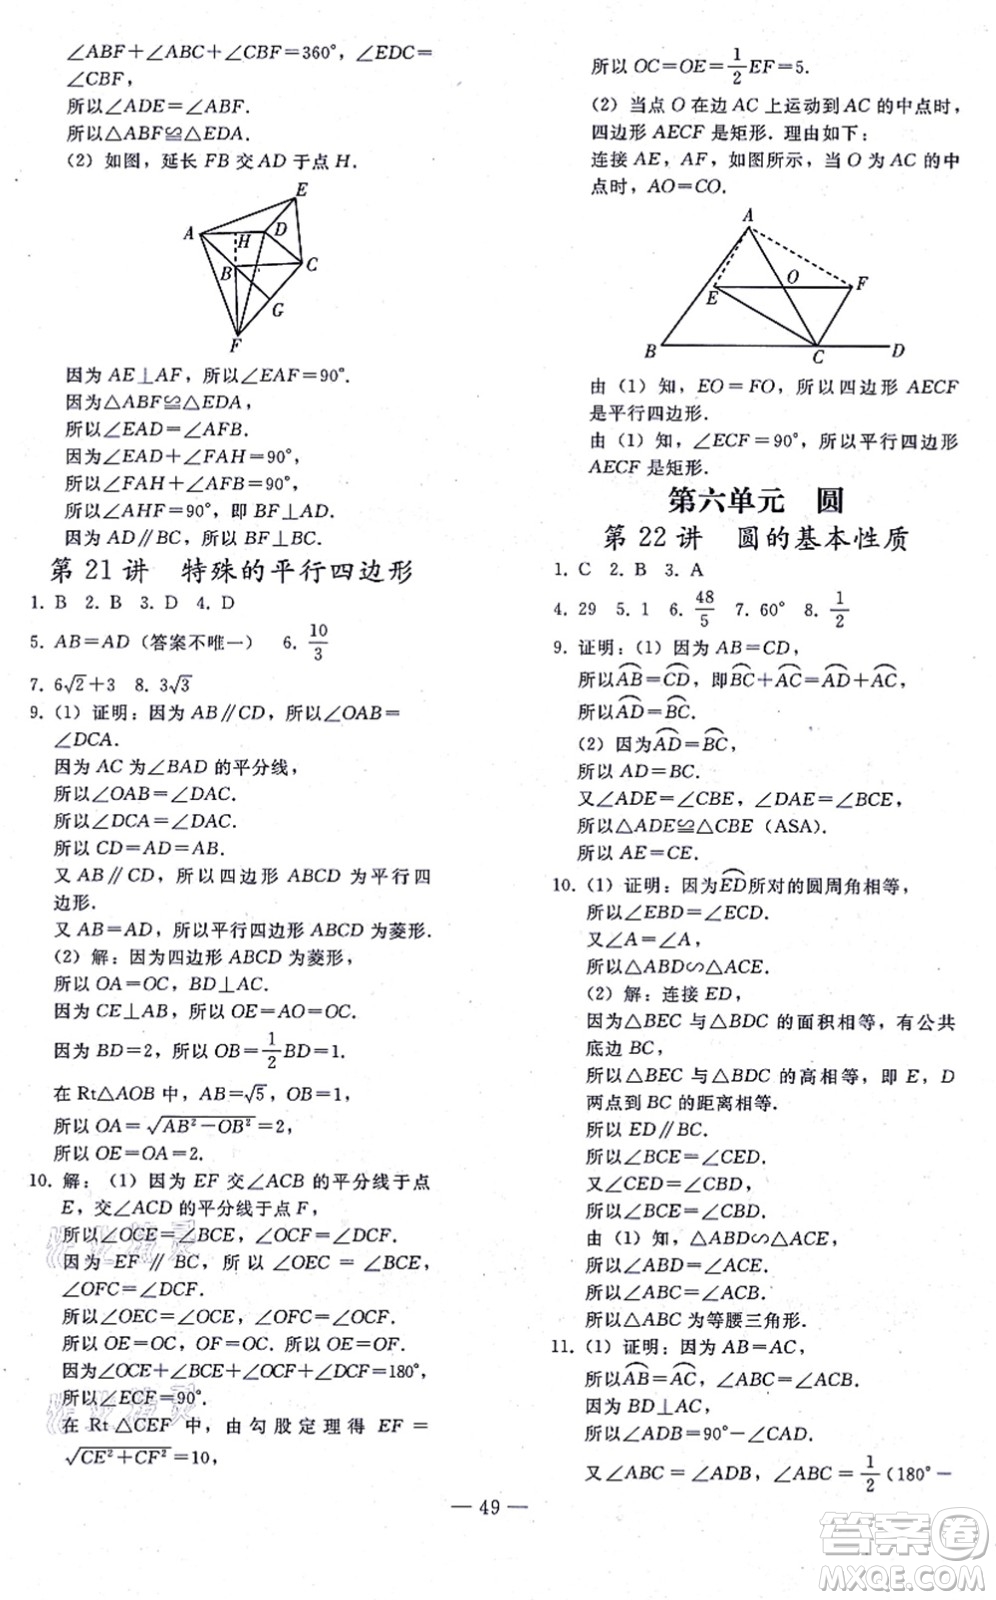 ∠ABF＋∠ABC＋∠CBF＝360°，∠EDC＝
∠CBF，
所以∠ADE＝∠ABF．
所以△ABF≌△EDA．
（2）如图，延长 FB 交 AD 于点 H．
E
A
H
D
B
C
G
F
因为 AE⊥AF，所以∠EAF＝90°．
因为△ABF≌△EDA，
所以∠EAD＝∠AFB．
因为∠EAD＋∠FAH＝90°，
所以∠FAH＋∠AFB＝90°，
所以∠AHF＝90°，即 BF⊥AD．
因为 AD∥BC，所以 BF⊥BC．
第 21 讲　特殊的平行四边形
1. B　2. B　3. D　4. D
5. AB＝AD（答案不唯一）　6. 10/3
7. 6√2＋3　8. 3√3
9.（1）证明：因为 AB∥CD，所以∠OAB＝
∠DCA．
因为 AC 为∠BAD 的平分线，
所以∠OAB＝∠DAC．
所以∠DCA＝∠DAC．
所以 CD＝AD＝AB．
又 AB∥CD，所以四边形 ABCD 为平行四
边形．
又 AB＝AD，所以平行四边形 ABCD 为菱形．
（2）解：因为四边形 ABCD 为菱形，
所以 OA＝OC，BD⊥AC．
因为 CE⊥AB，所以 OE＝AO＝OC．
因为 BD＝2，所以 OB＝1/2BD＝1．
在 Rt△AOB 中，AB＝√5，OB＝1，
所以 OA＝√(AB²－OB²)＝2，
所以 OE＝OA＝2．
10. 解：（1）因为 EF 交∠ACB 的平分线于点
E，交∠ACD 的平分线于点 F，
所以∠OCE＝∠BCE，∠OCF＝∠DCF．
因为 EF∥BC，所以∠OEC＝∠BCE，
∠OFC＝∠DCF．
所以∠OEC＝∠OCE，∠OFC＝∠OCF．
所以 OE＝OC，OF＝OC．所以 OE＝OF．
因为∠OCE＋∠BCE＋∠OCF＋∠DCF＝180°，
所以∠ECF＝90°．
在 Rt△CEF 中，由勾股定理得 EF＝
√(CE²＋CF²)＝10，
所以 OC＝OE＝1/2EF＝5．
（2）当点 O 在边 AC 上运动到 AC 的中点时，
四边形 AECF 是矩形．理由如下：
连接 AE，AF，如图所示，当 O 为 AC 的中
点时，AO＝CO．
A
E
O
F
B
C
D
由（1）知，EO＝FO，所以四边形 AECF
是平行四边形．
由（1）知，∠ECF＝90°，所以平行四边形
AECF 是矩形．
第六单元　圆
第 22 讲　圆的基本性质
1. C　2. B　3. A
4. 29　5. 1　6. 48/5　7. 60°　8. 1/2
9. 证明：（1）因为 AB＝CD，
所以⌒AB＝⌒CD，即⌒BC＋⌒AC＝⌒AD＋⌒AC，
所以⌒AD＝⌒BC．
（2）因为⌒AD＝⌒BC，
所以 AD＝BC．
又∠ADE＝∠CBE，∠DAE＝∠BCE，
所以△ADE≌△CBE（ASA）．
所以 AE＝CE．
10.（1）证明：因为⌒ED所对的圆周角相等，
所以∠EBD＝∠ECD．
又∠A＝∠A，
所以△ABD∽△ACE．
（2）解：连接 ED，
因为△BEC 与△BDC 的面积相等，有公共
底边 BC，
所以△BEC 与△BDC 的高相等，即 E，D
两点到 BC 的距离相等．
所以 ED∥BC．
所以∠BCE＝∠CED．
又∠CED＝∠CBD，
所以∠BCE＝∠CBD．
由（1）知，△ABD∽△ACE，
所以∠ABD＝∠ACE．
所以∠ABC＝∠ACB．
所以△ABC 为等腰三角形．
11.（1）证明：因为 AB＝AC，
所以⌒AB＝⌒AC，∠ABC＝∠ACB．
因为 BD⊥AC，
所以∠ADB＝90°－∠CAD．
又∠ABC＝∠ADB，∠ABC＝1/2（180°－
— 49 —
答案圈
MXQE.COM